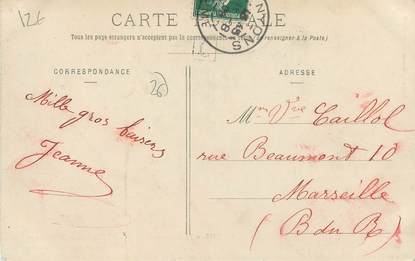 126
CARTE
LE
Tous les pays étrangers n'acceptent pas la correspondance
renseigner à la Poste)
CORRESPONDANCE
26
Mille gros baisers
Jeanne
ADRESSE
Mme Vve Caillol
rue Beaumont 10
Marseille
(B du R)